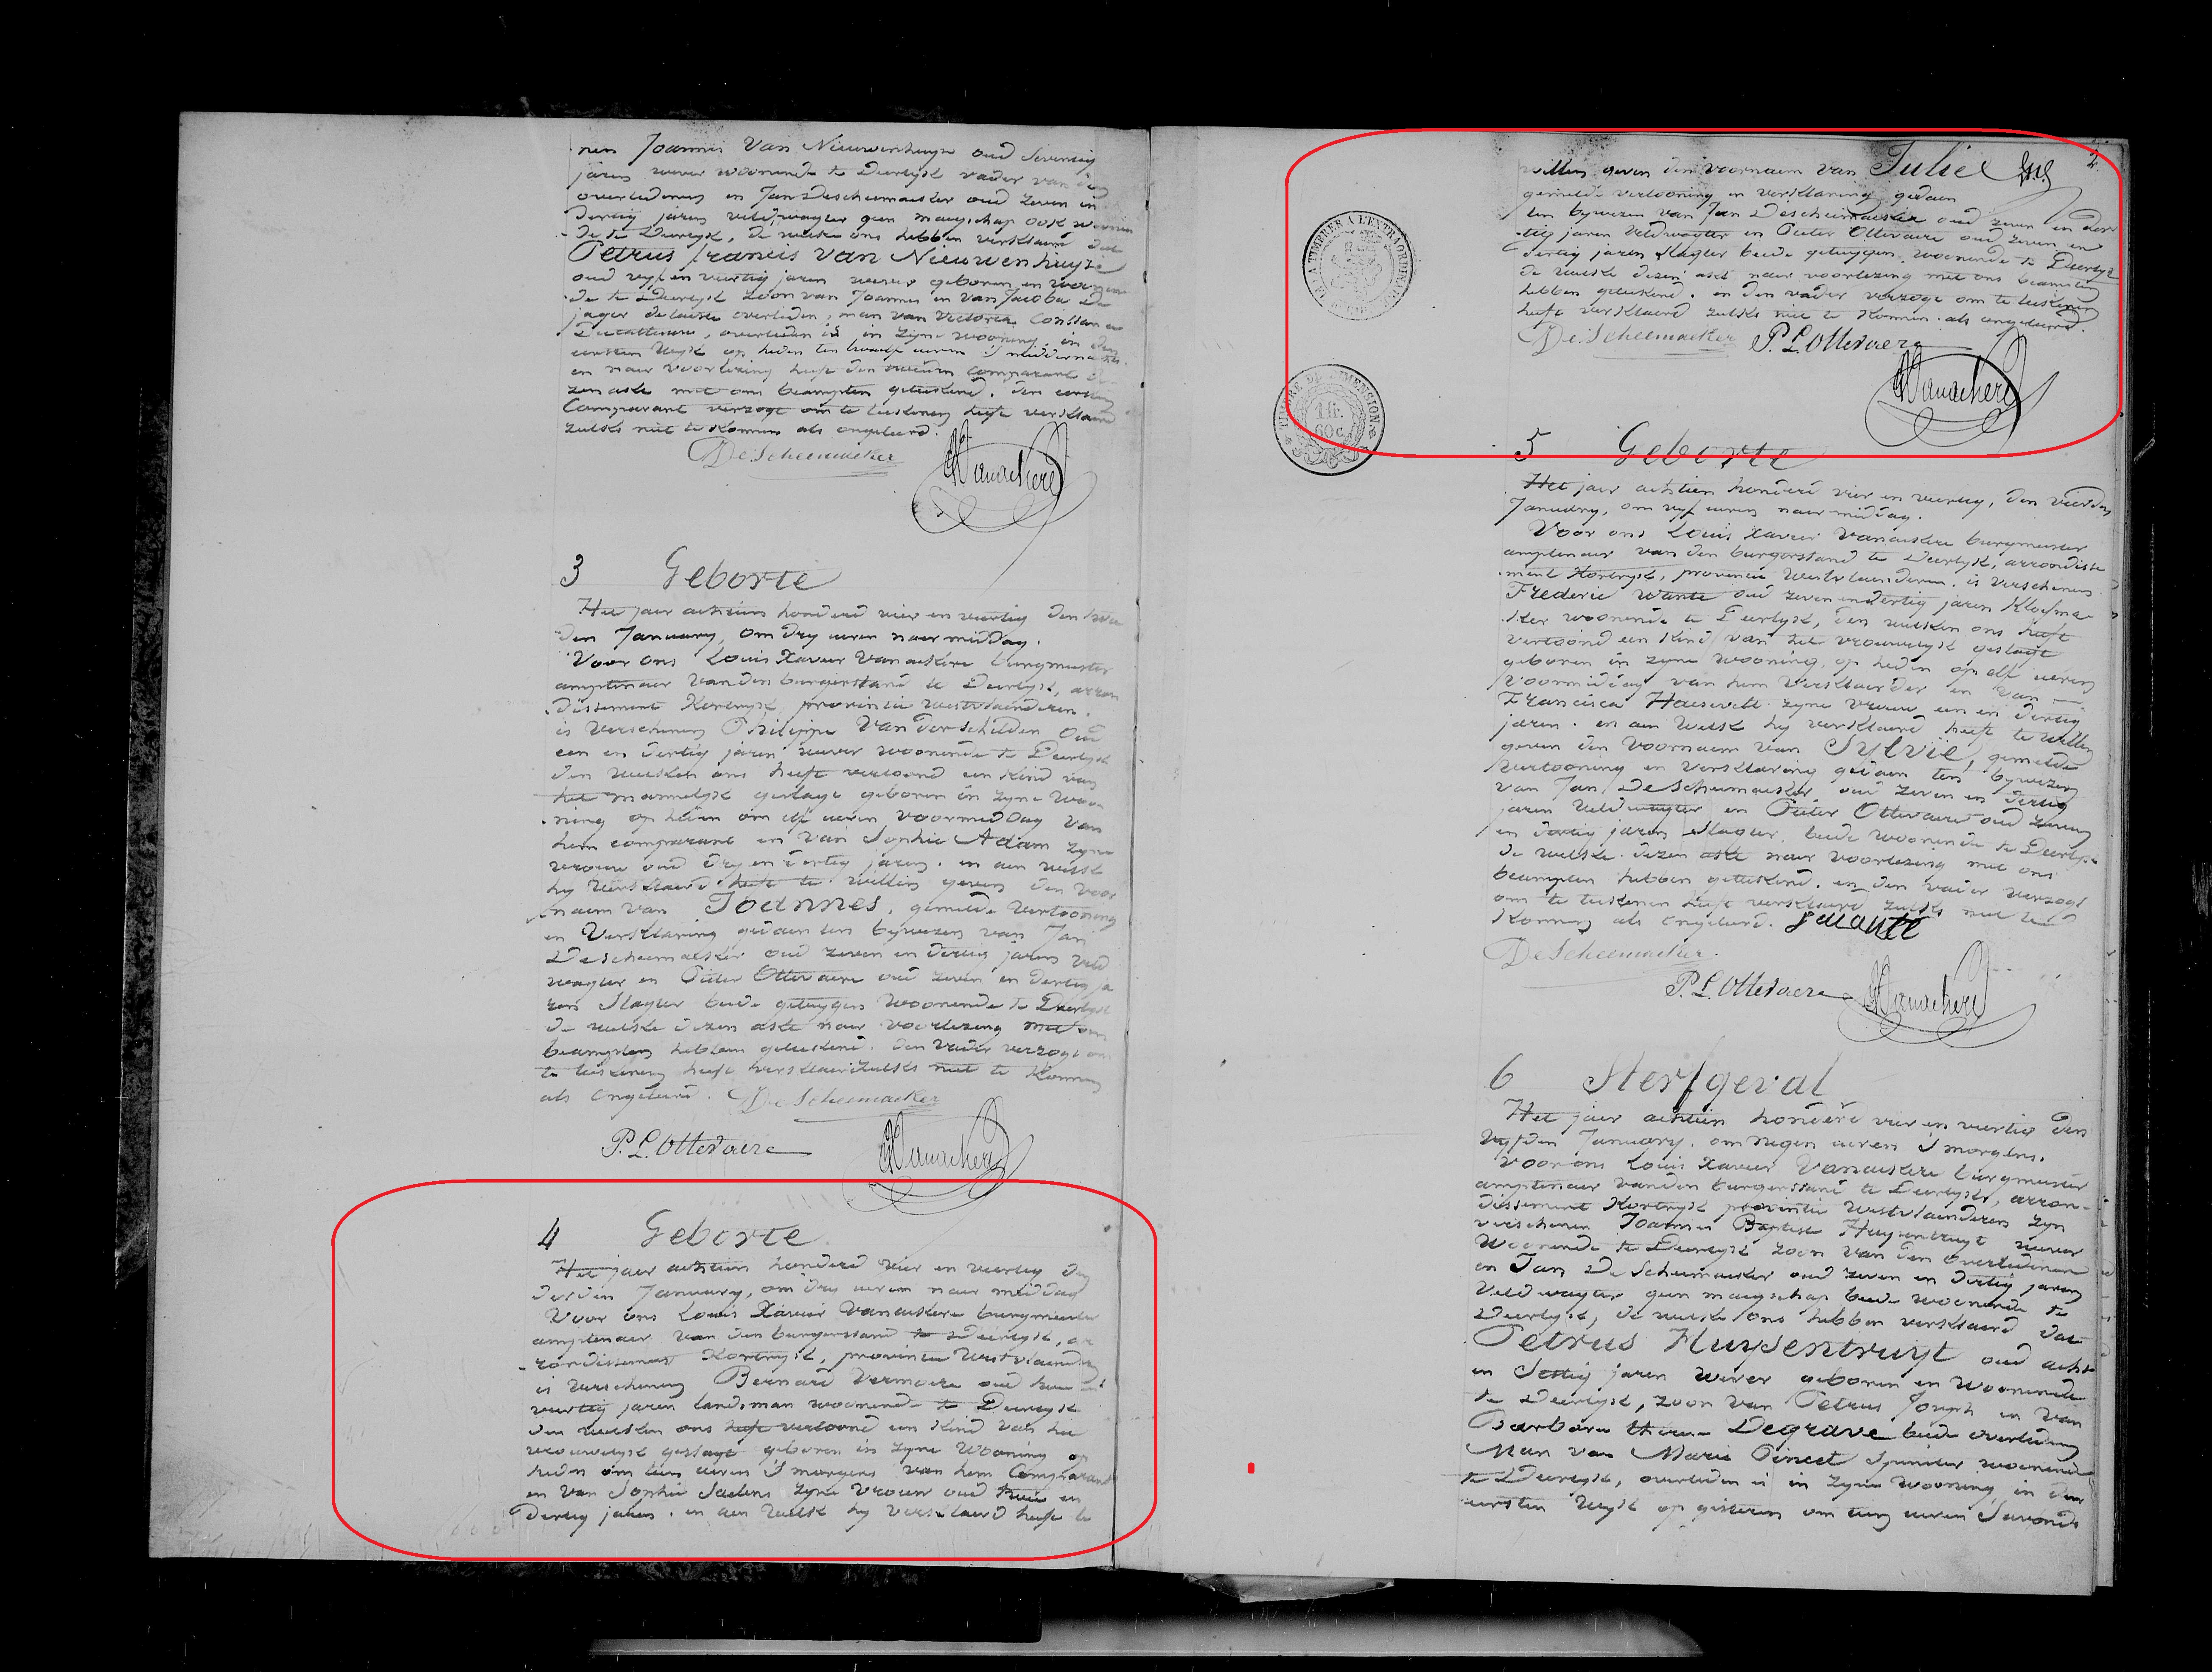 nen Joannes Van Nieuwenhuyse oud seventig
jaren wever woonende te Deerlyk vader van den
overledenen en Jan Descheemaeker oud zeven en
dertig jaren veldwagter geen maegschap ook woonen
de te Deerlyk, de welke ons hebben verklaerd dat
Petrus francis Van Nieuwenhuyse
oud vyf en veertig jaren wever geboren en woonen
de te Deerlyk zoon van Joannes en van Jacoba De
jager de laetste overleden, man van Victoria
overleden is in zyne wooning in den
eersten wyk op heden ten twaelf ueren 's middernachts
en naer voorlezing heeft den tweeden Comparant de
zen akte met ons beampten geteekend. den eersten
Comparant verzogt om te teekenen heeft verklaerd
zulks niet te konnen als ongeleerd.
De Scheemaeker
3 Geborte
Het jaer achtien honderd vier en veertig den twee
den January, om dry ueren naer middag.
Voor ons Louis Xavier Vanackere burgmeester
amptenaer van den burgerstand te Deerlyk, arron
dissement Kortryk, provincie Westvlaenderen.
is verschenen Philippe Van der schelden oud
een en dertig jaren wever woonende te Deerlyk
den welken ons heeft vertoond een kind van
het mannelyk geslagt geboren in zyne woo-
ning op heden om elf ueren voormiddag van
hem comparant en van Sophie Adam zyne
vrouw oud dry en dertig jaren. en aen welk
hy verklaerd heeft te willen geven den voor
naem van Joannes, gemelde vertooning
en Verklaring gedaen ten bywezen van Jan
Descheemaeker oud zeven en dertig jaren veld
wagter en Pieter Ottevaere oud zeven en dertig ja
ren slagter beede getuygen woonende te Deerlyk
de welke dezen akte naer voorlezing met ons
beampten hebben geteekend. den vader verzogt om
te teekenen heeft verklaerd zulks niet te konnen
als ongeleerd. De Scheemaeker
P. L. Ottevaere
4 Geborte
Het jaer achtien honderd vier en veertig den
derden January, om dry ueren naer middag
Voor ons Louis Xavier Vanackere burgmeester
amptenaer van den burgerstand te Deerlyk, ar
rondissement Kortryk, provincie Westvlaenderen
is verschenen Bernard Vermoere oud twee en
veertig jaren landsman woonende te Deerlyk
den welken ons heeft vertoond een kind van het
vrouwelyk geslagt geboren in zyne wooning op
heden om tien ueren 's morgens van hem Comparant
en van Sophie zyne vrouw oud twee en
dertig jaren. en aen welk hy verklaerd heeft te
2
willen geven den voornaem van Julie
gemelde vertooning en verklaring gedaen
ten bywezen van Jan Descheemaeker oud zeven en der
tig jaren veldwagter en Pieter Ottevaere oud zeven en
dertig jaren slagter beede getuygen woonende te Deerlyk
de welke dezen akt naer voorlezing met ons beampten
hebben geteekend. en den vader verzogt om te teekenen
heeft verklaerd zulks niet te konnen als ongeleerd.
De Scheemaeker P. L. Ottevaere
A TIMBRER A L'EXTRAORDINAIRE
TIMBRE DE DIMENSION
1 fr.
60 c.
5 Geborte
Het jaer achtien honderd vier en veertig, den vierden
January, om vyf ueren naer middag.
Voor ons Louis Xavier Vanackere burgmeester
amptenaer van den burgerstand te Deerlyk, arrondisse
ment Kortryk, provincie Westvlaenderen. is verschenen
Frederic Wante oud zeven en dertig jaren kloefma
ker woonende te Deerlyk, den welken ons heeft
vertoond een kind van het vrouwelyk geslagt
geboren in zyne wooning, op heden op elf ueren
voormiddag van hem verklaerder en van
Francisca zyne vrouw, een en dertig
jaren. en aen welk hy verklaerd heeft te willen
geven den voornaem van Sylvie, gemelde
vertooning en verklaring gedaen ten bywezen
van Jan Descheemaeker oud zeven en dertig
jaren veldwagter en Pieter Ottevaere oud zeven
en dertig jaren slagter beede woonende te Deerlyk
de welke dezen akte naer voorlezing met ons
beampten hebben geteekend. en den vader verzogt
om te teekenen heeft verklaerd zulks niet te
konnen als ongeleerd. f wante
De Scheemaeker
P. L. Ottevaere
6 Sterfgeval
Het jaer achtien honderd vier en veertig den
vyfden January. om negen ueren 's morgens.
Voor ons Louis Xavier Vanackere burgmeester
amptenaer van den burgerstand te Deerlyk, arron-
dissement Kortryk provincie Westvlaenderen zyn
verschenen Joannes Baptiste Huysentruyt wever
woonende te Deerlyk zoon van den overledenen
en Jan De Scheemaeker oud zeven en dertig jaren
veldwagter geen maegschap beede woonende te
Deerlyk, de welke ons hebben verklaerd dat
Petrus Huysentruyt oud acht
en sestig jaren wever geboren en woonende
te Deerlyk, zoon van Petrus Joseph en van
Barbara Degrave beede overleden
Man van Marie Pinset spinster woonende
te Deerlyk, overleden is in zyne wooning, in den
eersten wyk op gisteren om ueren 's avonds